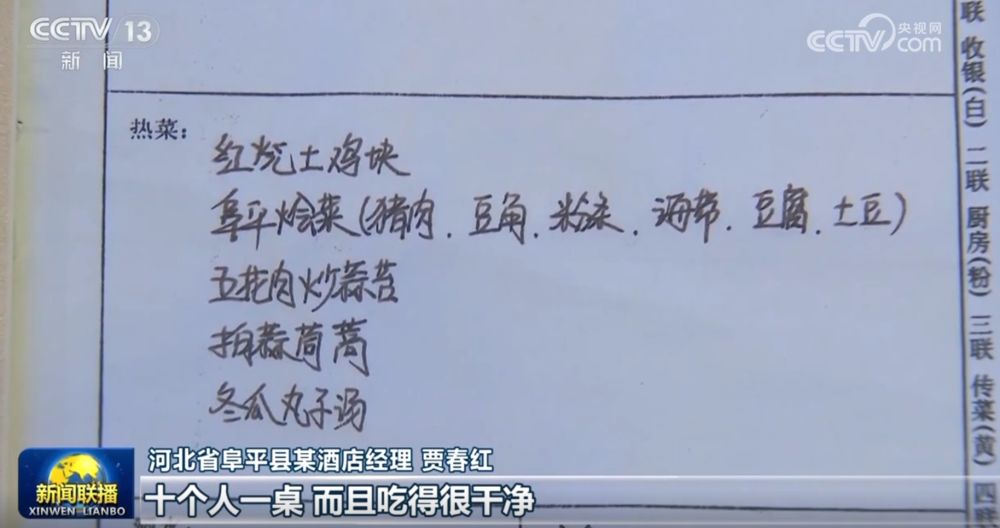 CCTV 13
新闻
央视网
CCTV.com
热菜：
红烧土鸡块
阜平烩菜(猪肉、豆角、粉条、海带、豆腐、土豆)
五花肉炒蒜苔
拍蒜茼蒿
冬瓜丸子汤
联 收银(白) 二联 厨房(粉) 三联 传菜(黄) 四联
河北省阜平县某酒店经理 贾春红
十个人一桌 而且吃得很干净
新闻联播
XINWEN LIANBO